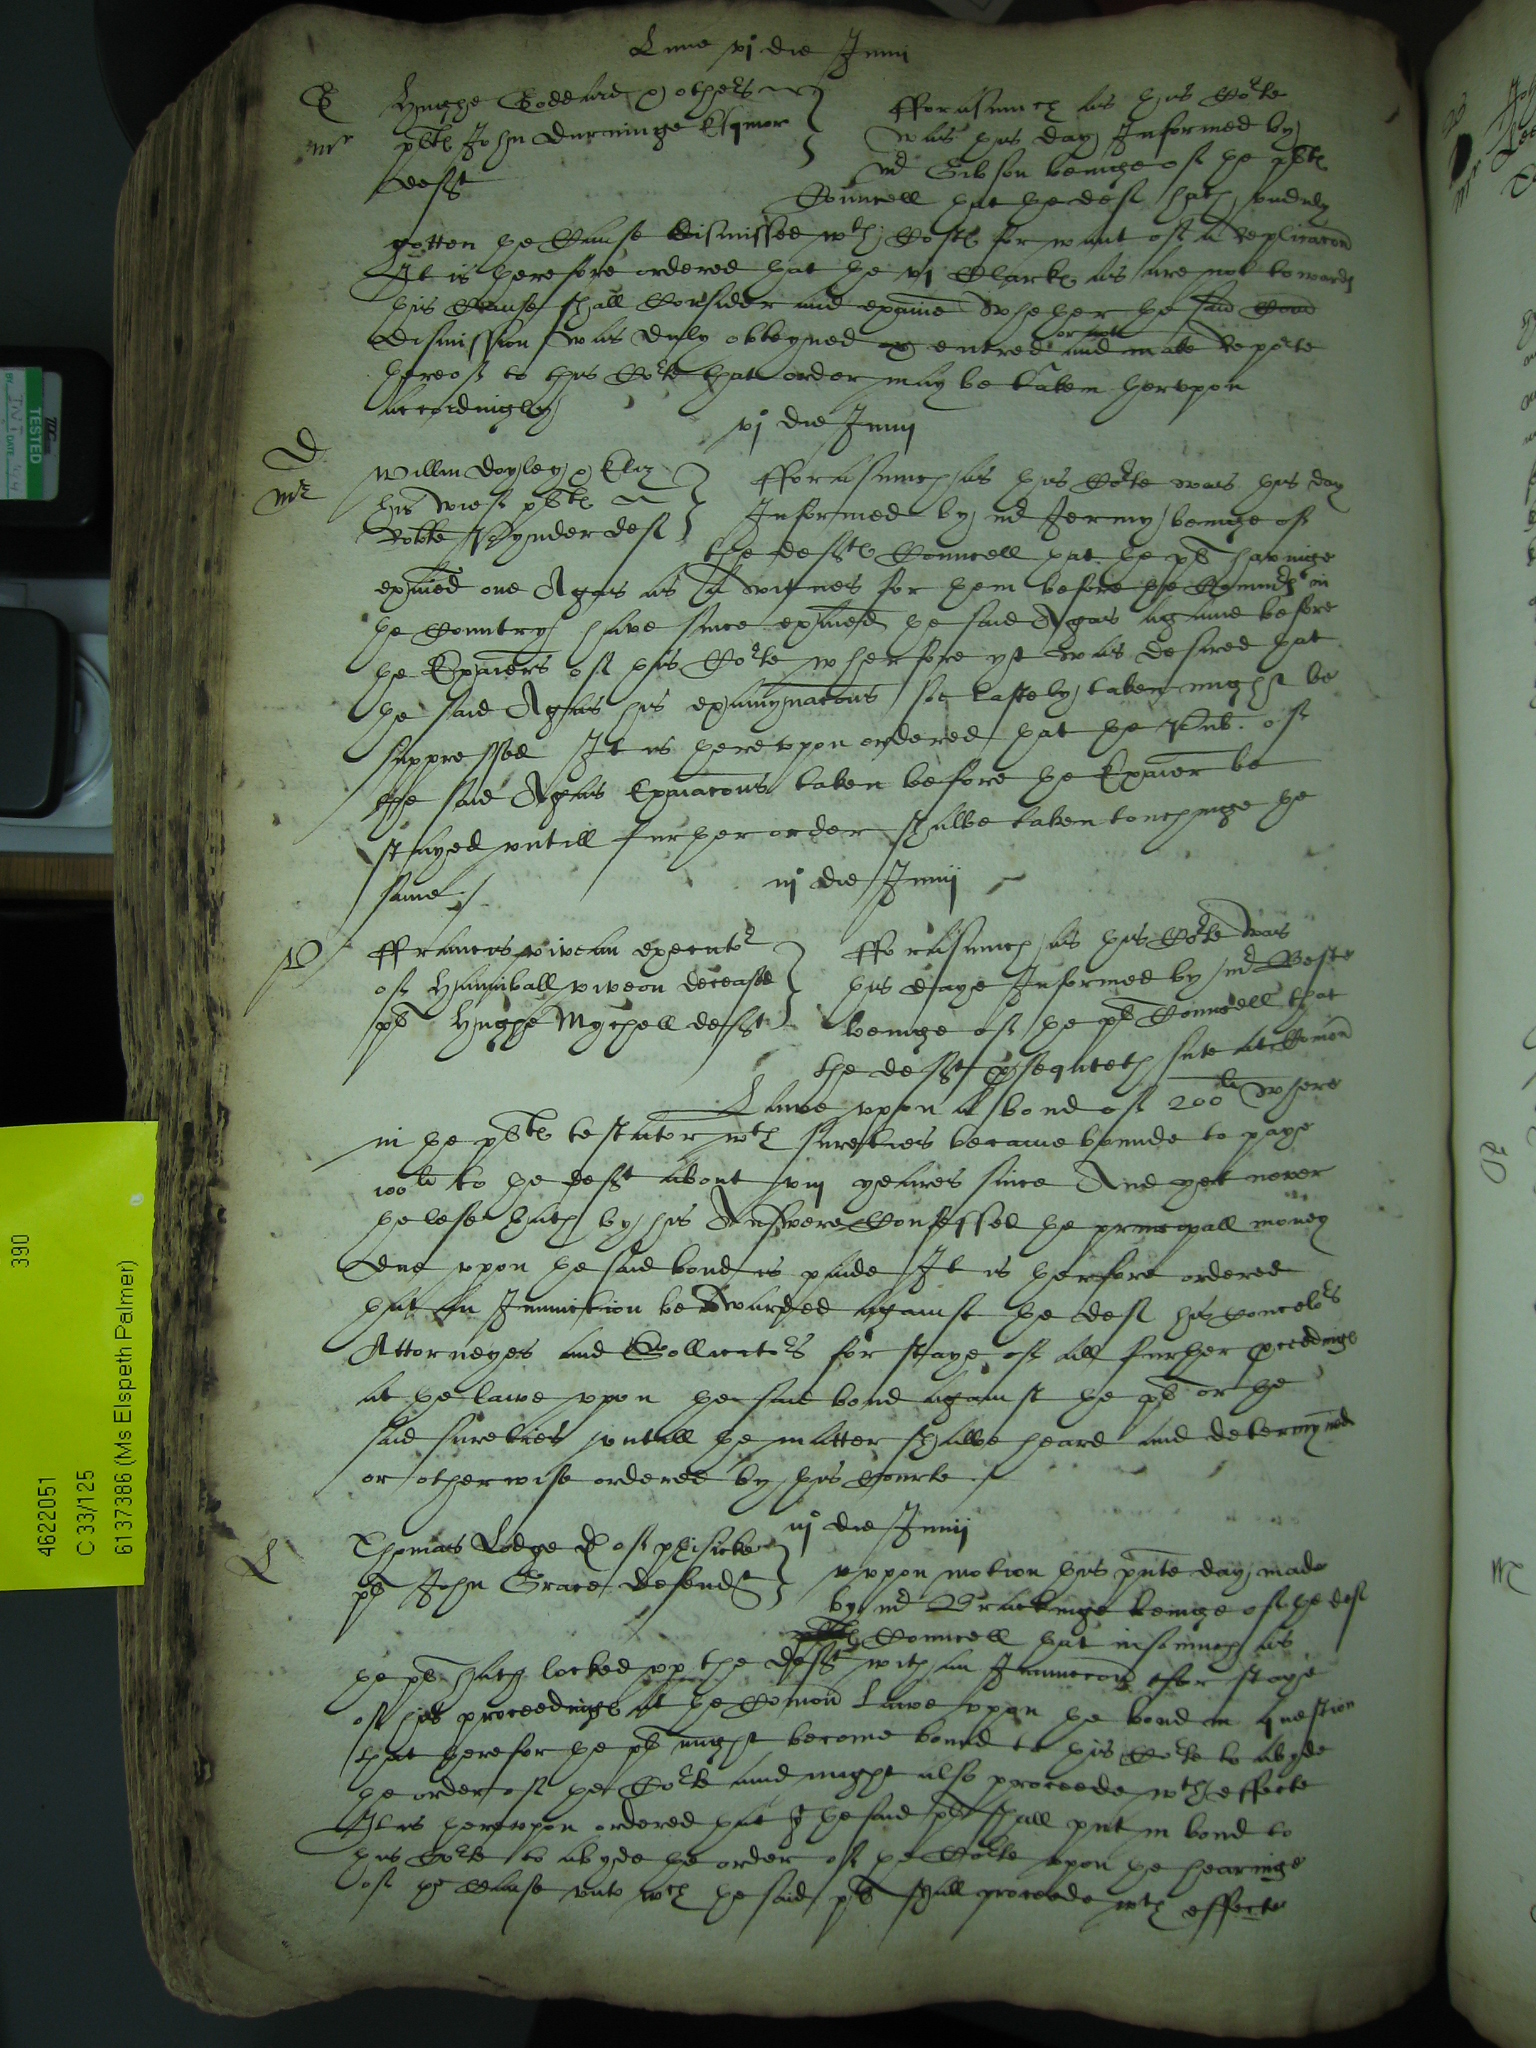 Lune vj die Junii
G
mr
Hughe Goddard & others
plts John Dunninge Esquior
deft
fforasmuch as this Corte
was this day Informed by
mr Gibson beinge of the plts
Councell that the deft hath unduly
gotten the Cause dismissed wth Costs for want of a Replicacon
It is therefore ordered that the vj Clarks as are not towards
this Cause shall Consider and examine whether the said
dismission was duly obteyned & entred or not and make Reporte
thereof to this Corte that order may be taken therupon
accordingly
vj die Junij
D
mr
Willm Doyley & Eliz
his wief plts
Robte deft
fforasmuch as this Corte was this day
Informed by mr Jermy beinge of
the defts Councell that the plt havinge
exaied one Agas as a witnes for them before the Comrs in
the Country have since exaied the said Agas againe before
the Exaiers of this Corte wherfore yt was desired that
the said Agas his examynacons so lastely taken might be
suppressed It is thereupon ordered that the Pub. of
the said Agas Exaiacons taken before the Exaier be
stayed untill further order shalbe taken touchinge the
same
iij die Junij
V
ffrancis vivean executor
of Hanniball viveon deceased
plt Hughe Mychell deft
fforasmuch as this Corte was
this daye Informed by mr Beste
beinge of the plt Councell that
the deft psequteth sute at Comon
Lawe upon a bond of 200li where
in the plts testator wth sureties became bounde to paye
100li to the deft about viij yeares since And yet never
thelesse hath by his Answere Confessed the principall money
due upon the said bond is paide It is therfore ordered
that an Iniunction be Awarded against the deft his Councelrs
Attorneyes and Sollicitors for staye of all further pceedings
at the lawe upon the said bond against the plt or the
said sureties untill the matter shalbe heard and determyned
or otherwise ordered by this Courte
iij die Junij
L
Thomas Lodge D of phisicke
plt John Grace defendt
uppon motion this pnte day made
by mr Brackinge beinge of the deft
Councell that in somuch as
the plt hath locked up the deft with an Iniunccon for staye
of his proceedings at the Comon Lawe upon the bond in question
that therefor the plt might become bound to this Corte to abyde
the order of the Corte and might also proceede wth effecte
It is thereupon ordered that the said plt shall put in bond to
this Corte to abyde the order of the Corte upon the hearinge
of the Cause unto wch the said plt shall proceede wth effecte
TESTED
DATE
390
4622051
C 33/125
6137386 (Ms Elspeth Palmer)